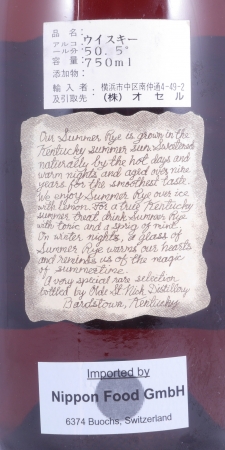 品名: ウイスキー
アルコール分: 50.5°
容量: 750ml
添加物:
輸入者 横浜市中区南仲通4-49-2
及引取先 (株) オセル
Our Summer Rye is grown in the
Kentucky summer sun. Sweetened
naturally by the hot days and
warm nights and aged over nine
years for the smoothest taste.
We enjoy Summer Rye over ice
with lemon. For a true Kentucky
summer treat drink Summer Rye
with tonic and a sprig of mint.
On winter nights, a glass of
Summer Rye warms our hearts
and reminds us of the magic
of summertime.
A very special rare selection
bottled by Olde St. Nick Distillery
Bardstown, Kentucky
Imported by
Nippon Food GmbH
6374 Buochs, Switzerland